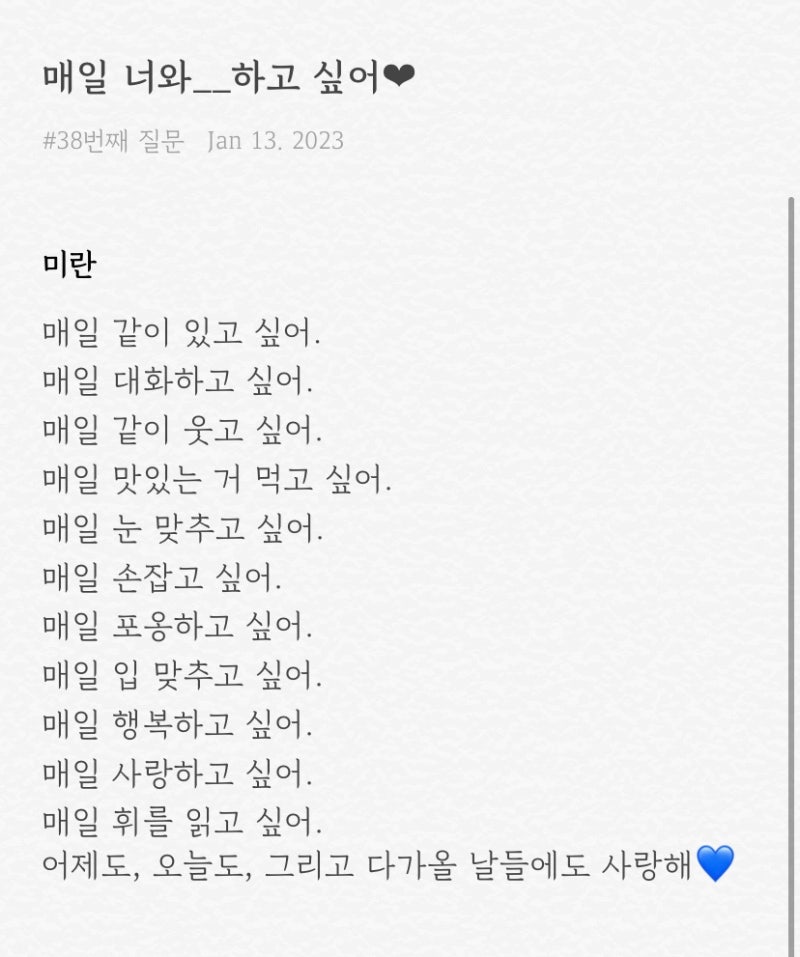 매일 너와__하고 싶어❤
#38번째 질문 Jan 13. 2023
미란
매일 같이 있고 싶어.
매일 대화하고 싶어.
매일 같이 웃고 싶어.
매일 맛있는 거 먹고 싶어.
매일 눈 맞추고 싶어.
매일 손잡고 싶어.
매일 포옹하고 싶어.
매일 입 맞추고 싶어.
매일 행복하고 싶어.
매일 사랑하고 싶어.
매일 휘를 읽고 싶어.
어제도, 오늘도, 그리고 다가올 날들에도 사랑해💙